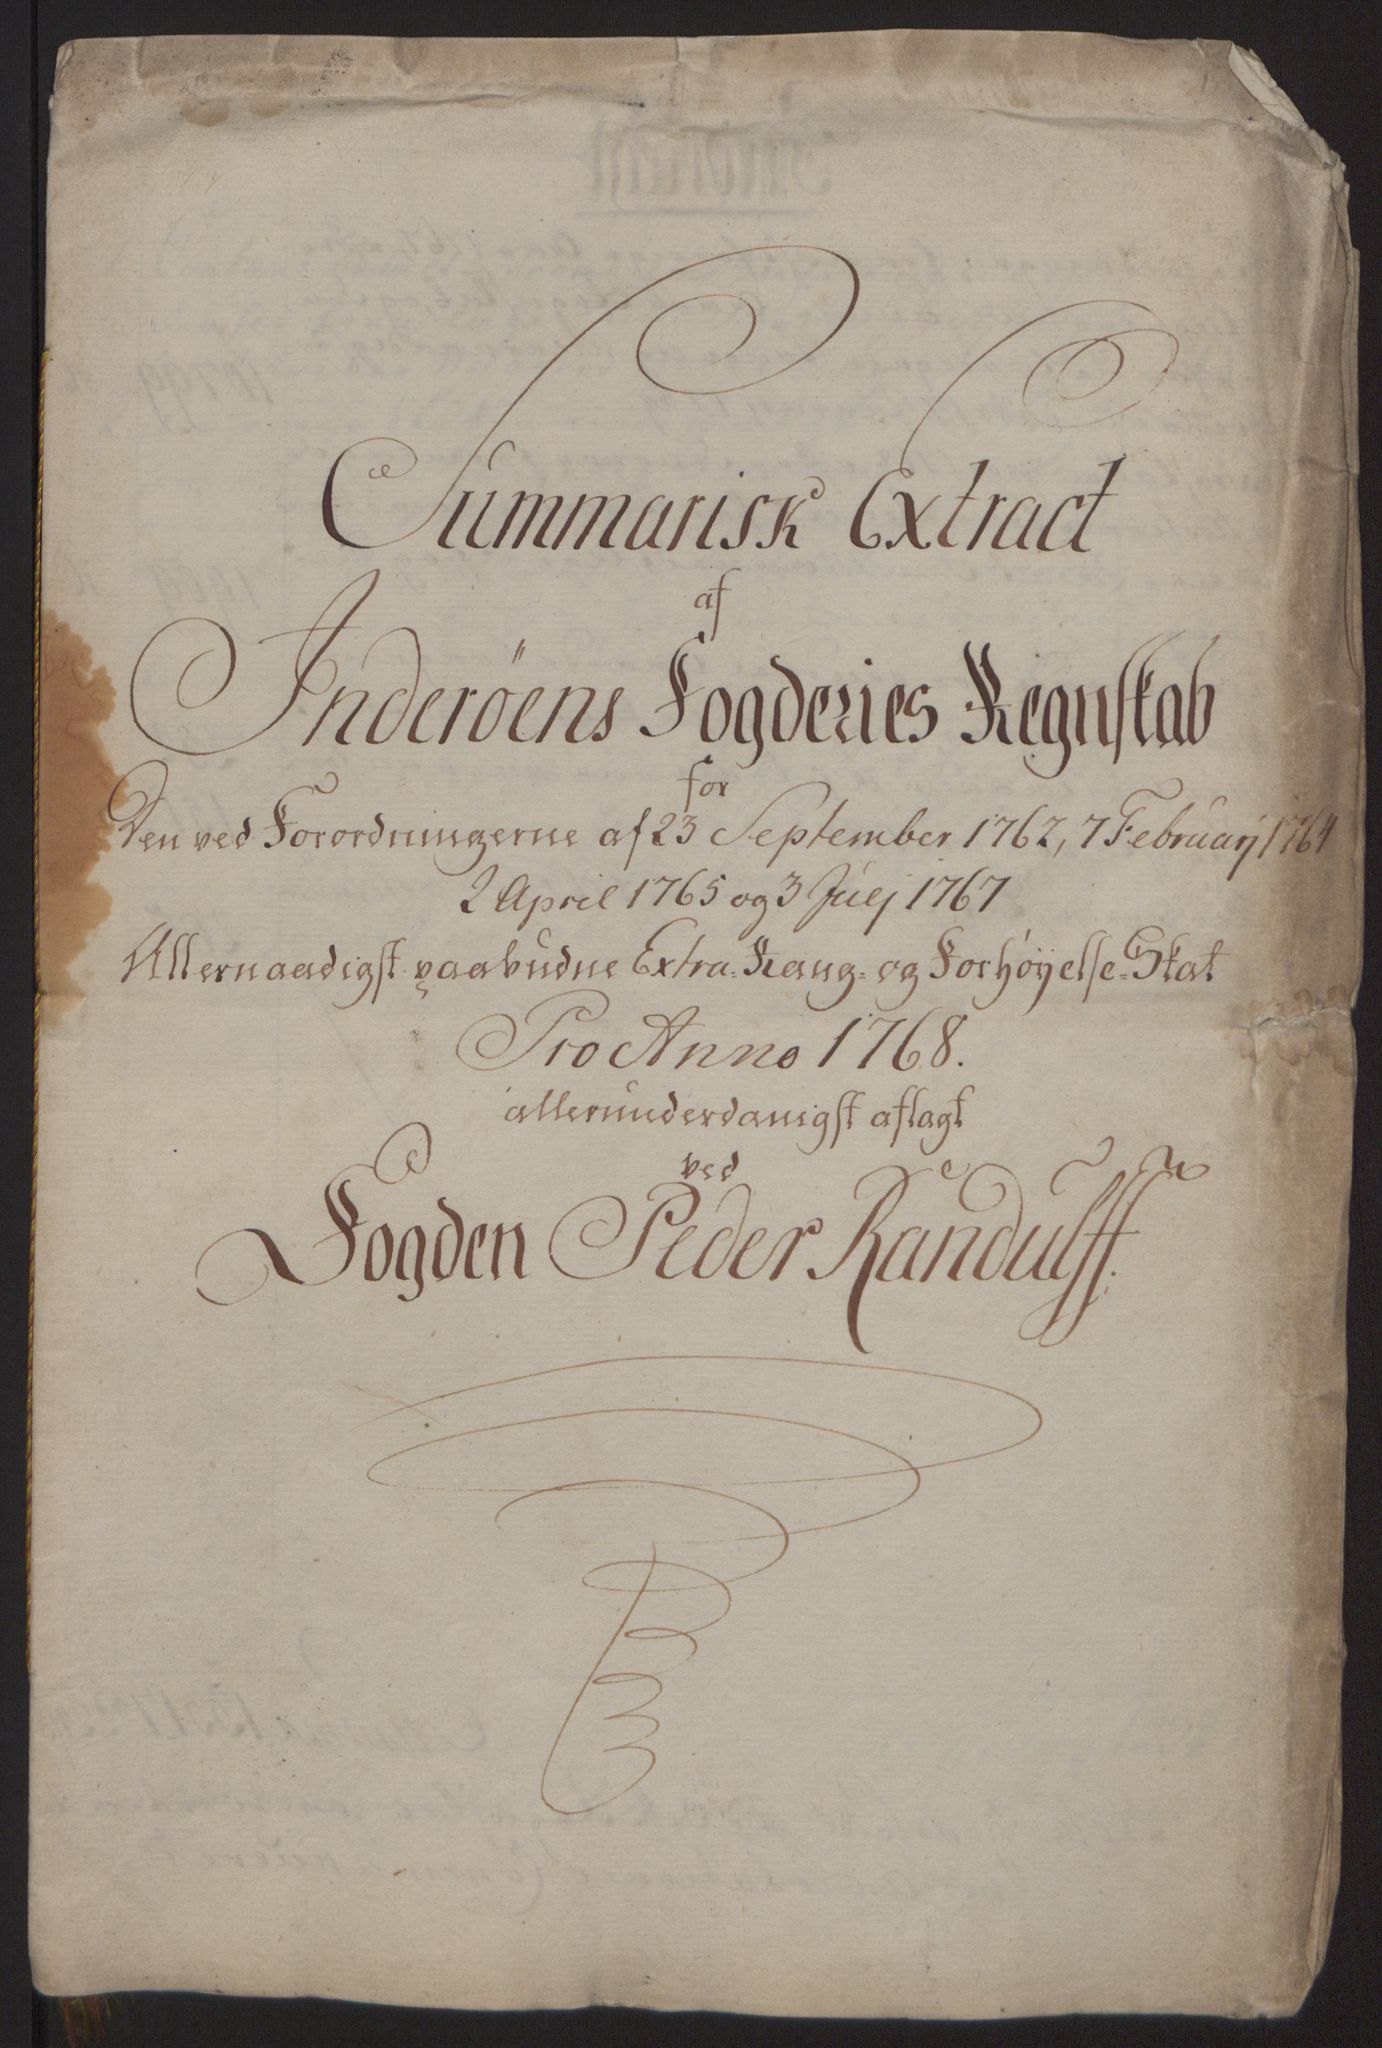 Summarisk Extract
af
Inderöens Fogderies Regnskab
for
Den ved Forordningerne af 23 September 1762, 7 Februarij 1764
2 April 1765 og 3 Julj 1767
Allernaadigst paabudne Extra- Rang- og Forhöyelse-Skat
Pro Anno 1768.
allerunderdanigst aflagt
ved
Fogden Peder Randulff.